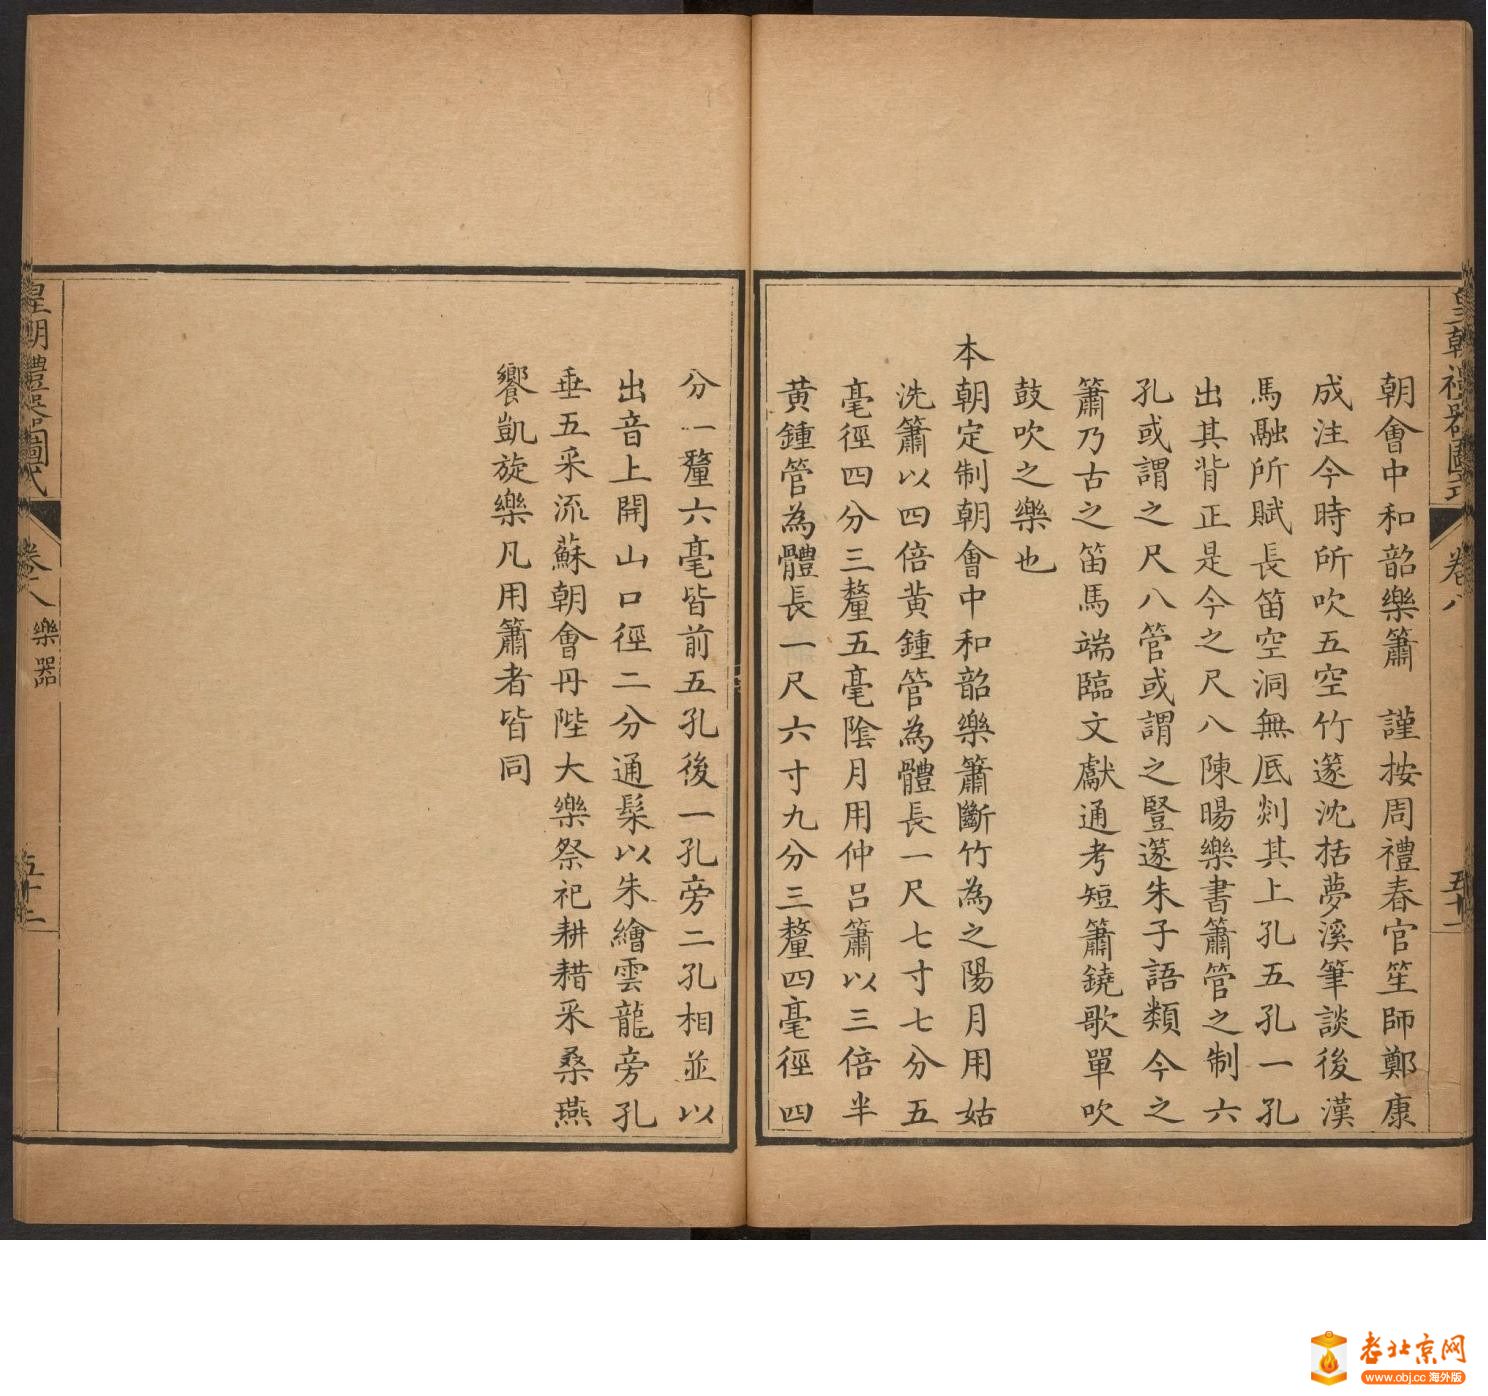 皇朝禮器圖式
卷八
五十一
朝會中和韶樂簫 謹按周禮春官笙師鄭康
成注今時所吹五空竹篴沈括夢溪筆談後漢
馬融所賦長笛空洞無底剡其上孔五孔一孔
出其背正是今之尺八陳暘樂書簫管之制六
孔或謂之尺八管或謂之豎篴朱子語類今之
簫乃古之笛馬端臨文獻通考短簫鐃歌單吹
鼓吹之樂也
本朝定制朝會中和韶樂簫斷竹為之陽月用姑
洗簫以四倍黃鍾管為體長一尺七寸七分五
毫徑四分三釐五毫陰月用仲呂簫以三倍半
黃鍾管為體長一尺六寸九分三釐四毫徑四
分一釐六毫皆前五孔後一孔旁二孔相並以
出音上開山口徑二分通髹以朱繪雲龍旁孔
垂五采流蘇朝會丹陛大樂祭祀耕耤采桑燕
饗凱旋樂凡用簫者皆同
皇朝禮器圖式
卷八 樂器
五十二
老北京网
www.obj.cc 海外版